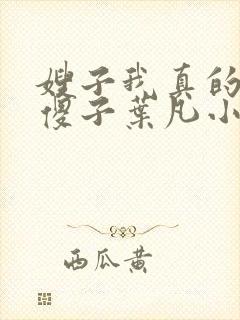 嫂子我真的
傻子葉凡小
西瓜黄